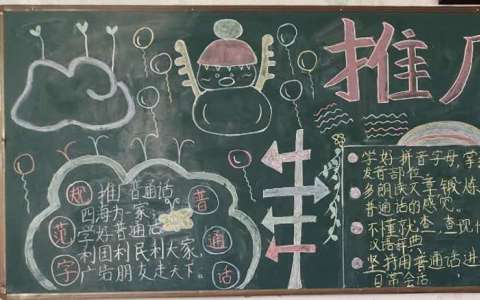 推广
规范字
普通话
推广普通话
四海为一家,
学好普通话
利国利民利大家,
广 朋友走天下。
学好拼音字母,掌
发音部位。
多朗读文章锻炼
普通话的感觉。
不懂就查,查现
汉语辞典
坚持用普通话进
日常会话